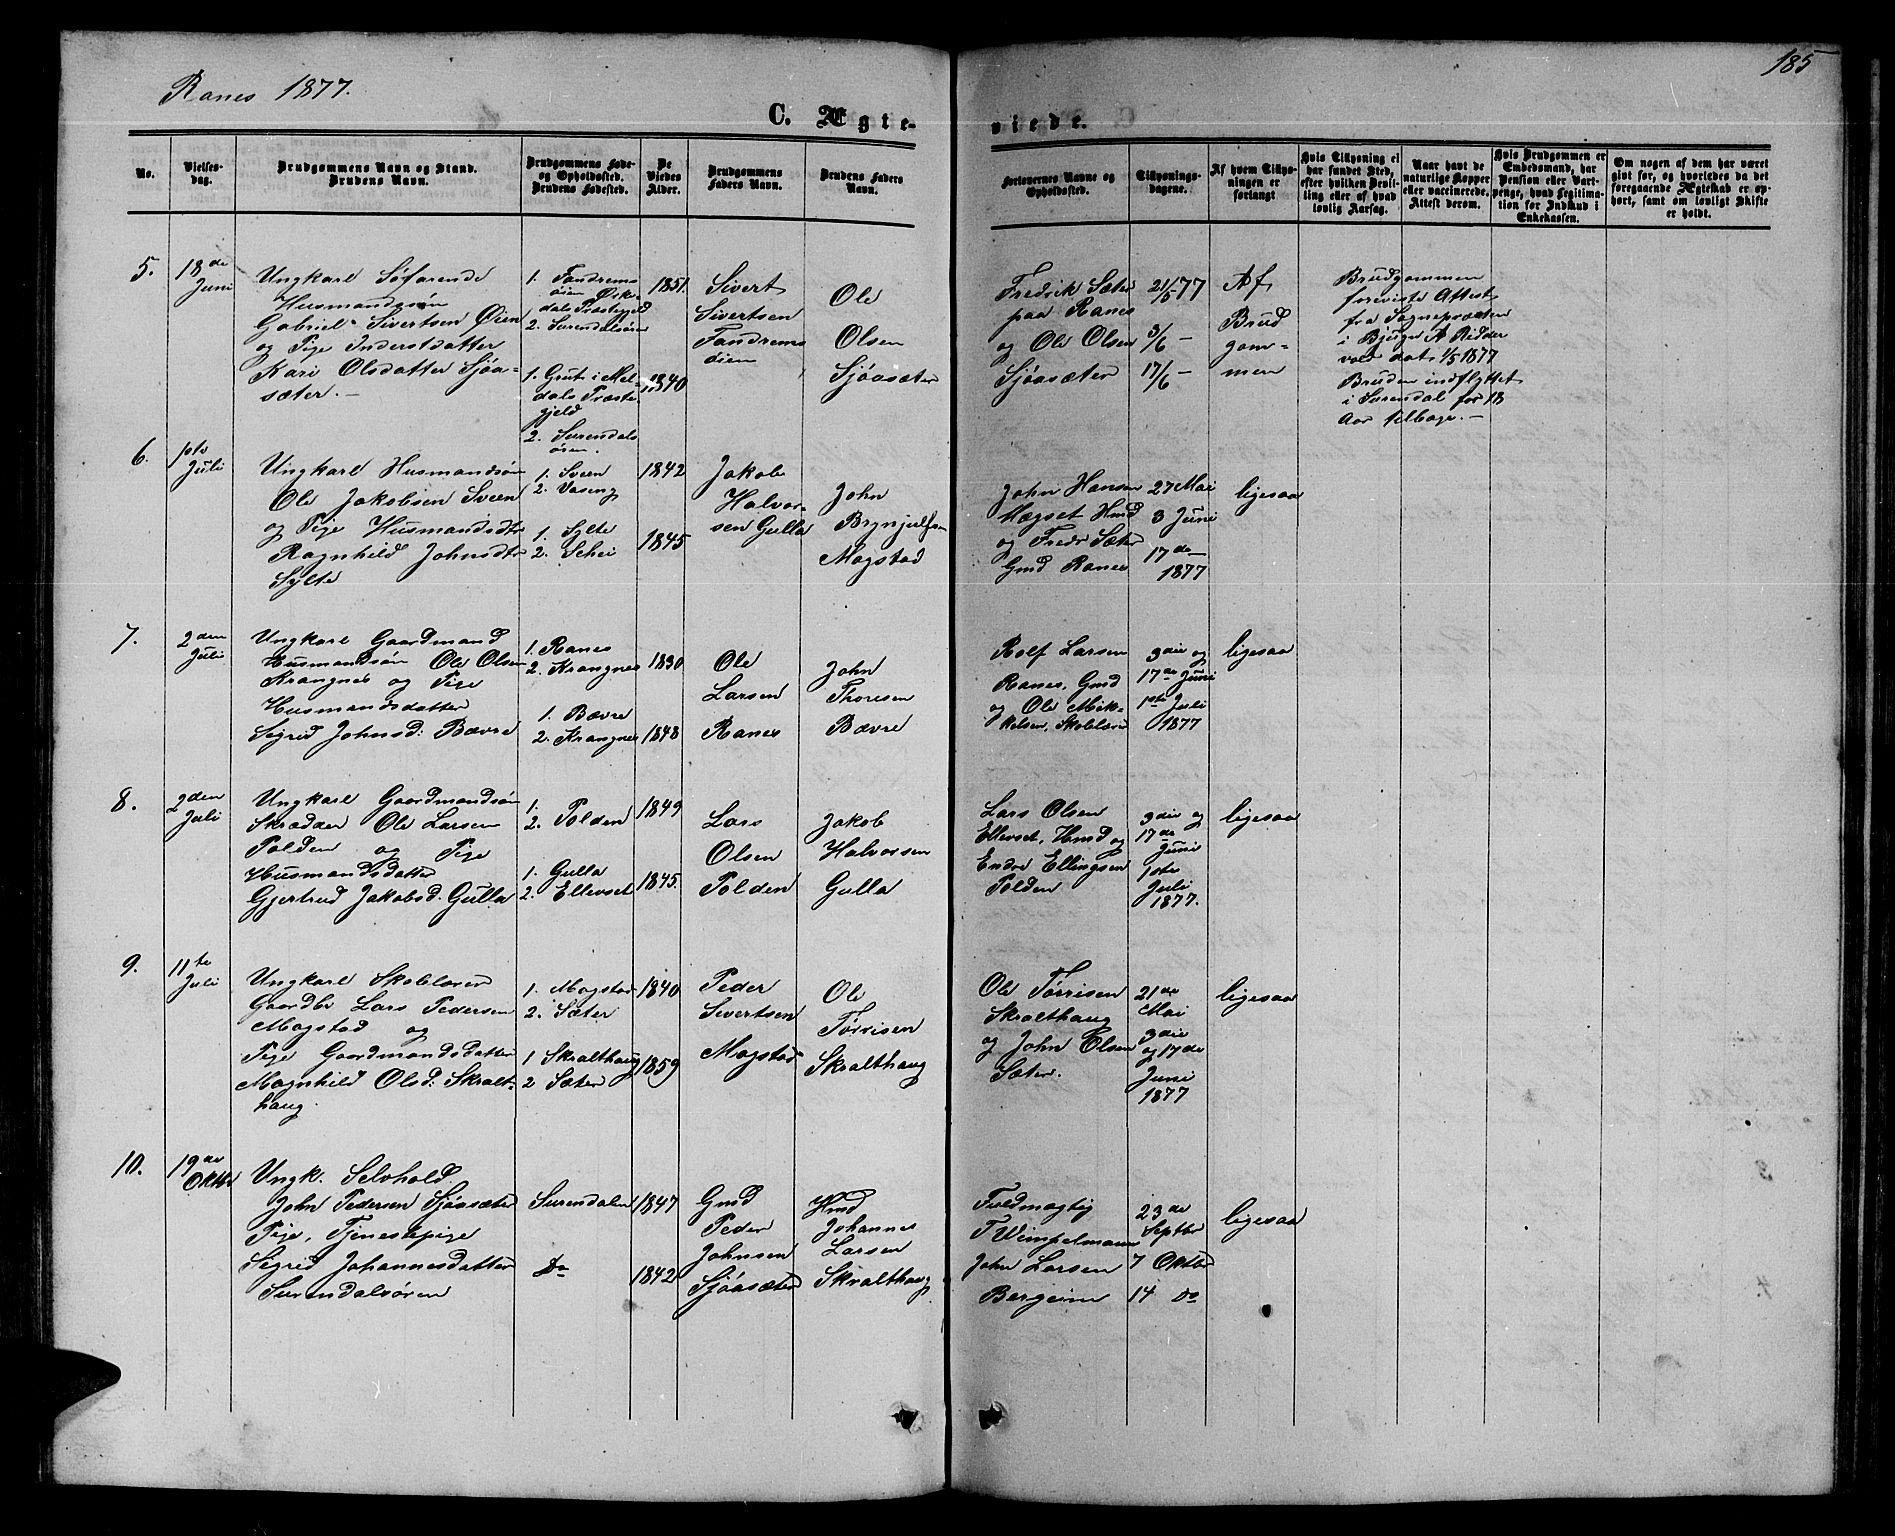 185
Ranes 1877.
C. Ægte-
viede.
No.
Vielses-
dag.
Brudgommens Navn og Stand.
Brudens Navn.
Brudgommens Føde-
og Opholdssted.
Brudens Fødested.
De
Viedes
Alder.
Brudgommens
Faders Navn.
Brudens Faders
Navn.
Forlovernes Navne og
Opholdssted.
Tillysnings-
dagene.
Af hvem Tillys-
ningen er
forlangt
Hvis Tillysning ei
har fundet Sted,
efter hvilken Bevil-
ling eller af hvad
lovlig Aarsag.
Naar havt de
naturlige Kopper
eller vaccinerede.
Attest derom.
Hvis Brudgommen er
Embedsmand, har
Pension eller Vart-
penge, hvad Legitima-
tion for Indskud i
Enkekassen.
Om nogen af dem har været
gift før, og hvorledes da det
foregaaende Ægteskab er op-
hørt, samt om lovligt Skifte
er holdt.
5.
18de
Juni
Ungkarl Søfarende
Husmandssøn
Gabriel Sivertsen Øien
og Pige Inderstdatter
Kari Olsdatter Sjøa-
sæter.-
1. Fandrems
øien Ørke-
dals Præstegjeld
2. Surendalsøren
1. Grut i Mel-
dals Præste-
gjeld
2. Surendals
øren.
1851.
1840
Sivert
Sivertsen
Fandrems
øien
Ole
Olsen
Sjøasæter
Fredrik Sæter
paa Ranes
og Ole Olsen
Sjøasæter
21/5 77
3/6 -
17/6 -
Af
Brud
gom-
men
Brudgommen
foreviste Attest
fra Sognepræsten
i Bjugn A Ridder
vold dat. 1/5 1877
Bruden indflyttet
i Surendal for 18
Aar tilbage.-
6.
1ste
Juli
Ungkarl Husmandsøn
Ole Jakobsen Sveen
og Pige Husmandsdtr
Ragnhild Johnsdtr
Sylte
1. Sveen
2. Vaseng
1. Sylte
2. Schei
1842
1845
Jakob
Halvor-
sen Gulla
John
Brynjulfsen
Mogstad
John Hansen
Mægset Hmd
og Fredr Sæter
Gmd Ranes
27 Mai
3 Juni
17de -
1877
ligesaa
7.
2den
Juli
Ungkarl Gaardmand
Husmandsøn Ole Olsen
Krangnes og Pige
Husmandsdatter
Sigrid Johnsd. Bævre
1. Ranes
2. Krangnes
1. Bævre
2. Krangnes
1830
1848
Ole
Larsen
Ranes
John
Thoresen
Bævre
Rolf Larsen
Ranes, Gmd
og Ole Mik-
kelsen, Skolelærer
3die og
17de Juni
1ste Juli
1877
ligesaa
8.
2den
Juli
Ungkarl Gaardmandsøn
Skrædder Ole Larsen
Polden og Pige
Husmandsdatter
Gjertrud Jakobsd. Gulla
1.
2. Polden
1. Gulla
2. Ellevset
1849
1845.
Lars
Olsen
Polden
Jakob
Halvorsen
Gulla
Lars Olsen
Ellevset, Hmd og
Endre Ellingsen
Polden
3die og
17de
Juni
1ste
Juli
1877.
ligesaa
9.
11te
Juli
Ungkarl Skolelærer
Gaardbr Lars Pedersen
Mogstad og
Pige Gaardmandsdatter
Magnhild Olsd. Skralt-
haug.
1. Mogstad
2. Sæter
1 Skralthaug
2 Sæter
1840
1859
Peder
Sivertsen
Mogstad
Ole
Tørrisen
Skralthaug
Ole Tørrisen
Skralthaug
og John Olsen
Sæter.
21de
Mai
3die
og 17de
Juni
1877
ligesaa
10.
19de
Oktbr
Ungk. Selvhold
John Pedersen Sjøasæter
Pige, Tjenestepige
Sigrid Johannesdatter
Surendalsøren
Surendalen
Do
1847
1842
Gmd
Peder
Johnsen
Sjøasæter
Hmd
Johannes
Larsen
Skralthaug
Fuldmægtig
T Wimpelmann
John Larsen
Bergeim
23de
Septbr
7 Oktbr
14 Do
ligesaa